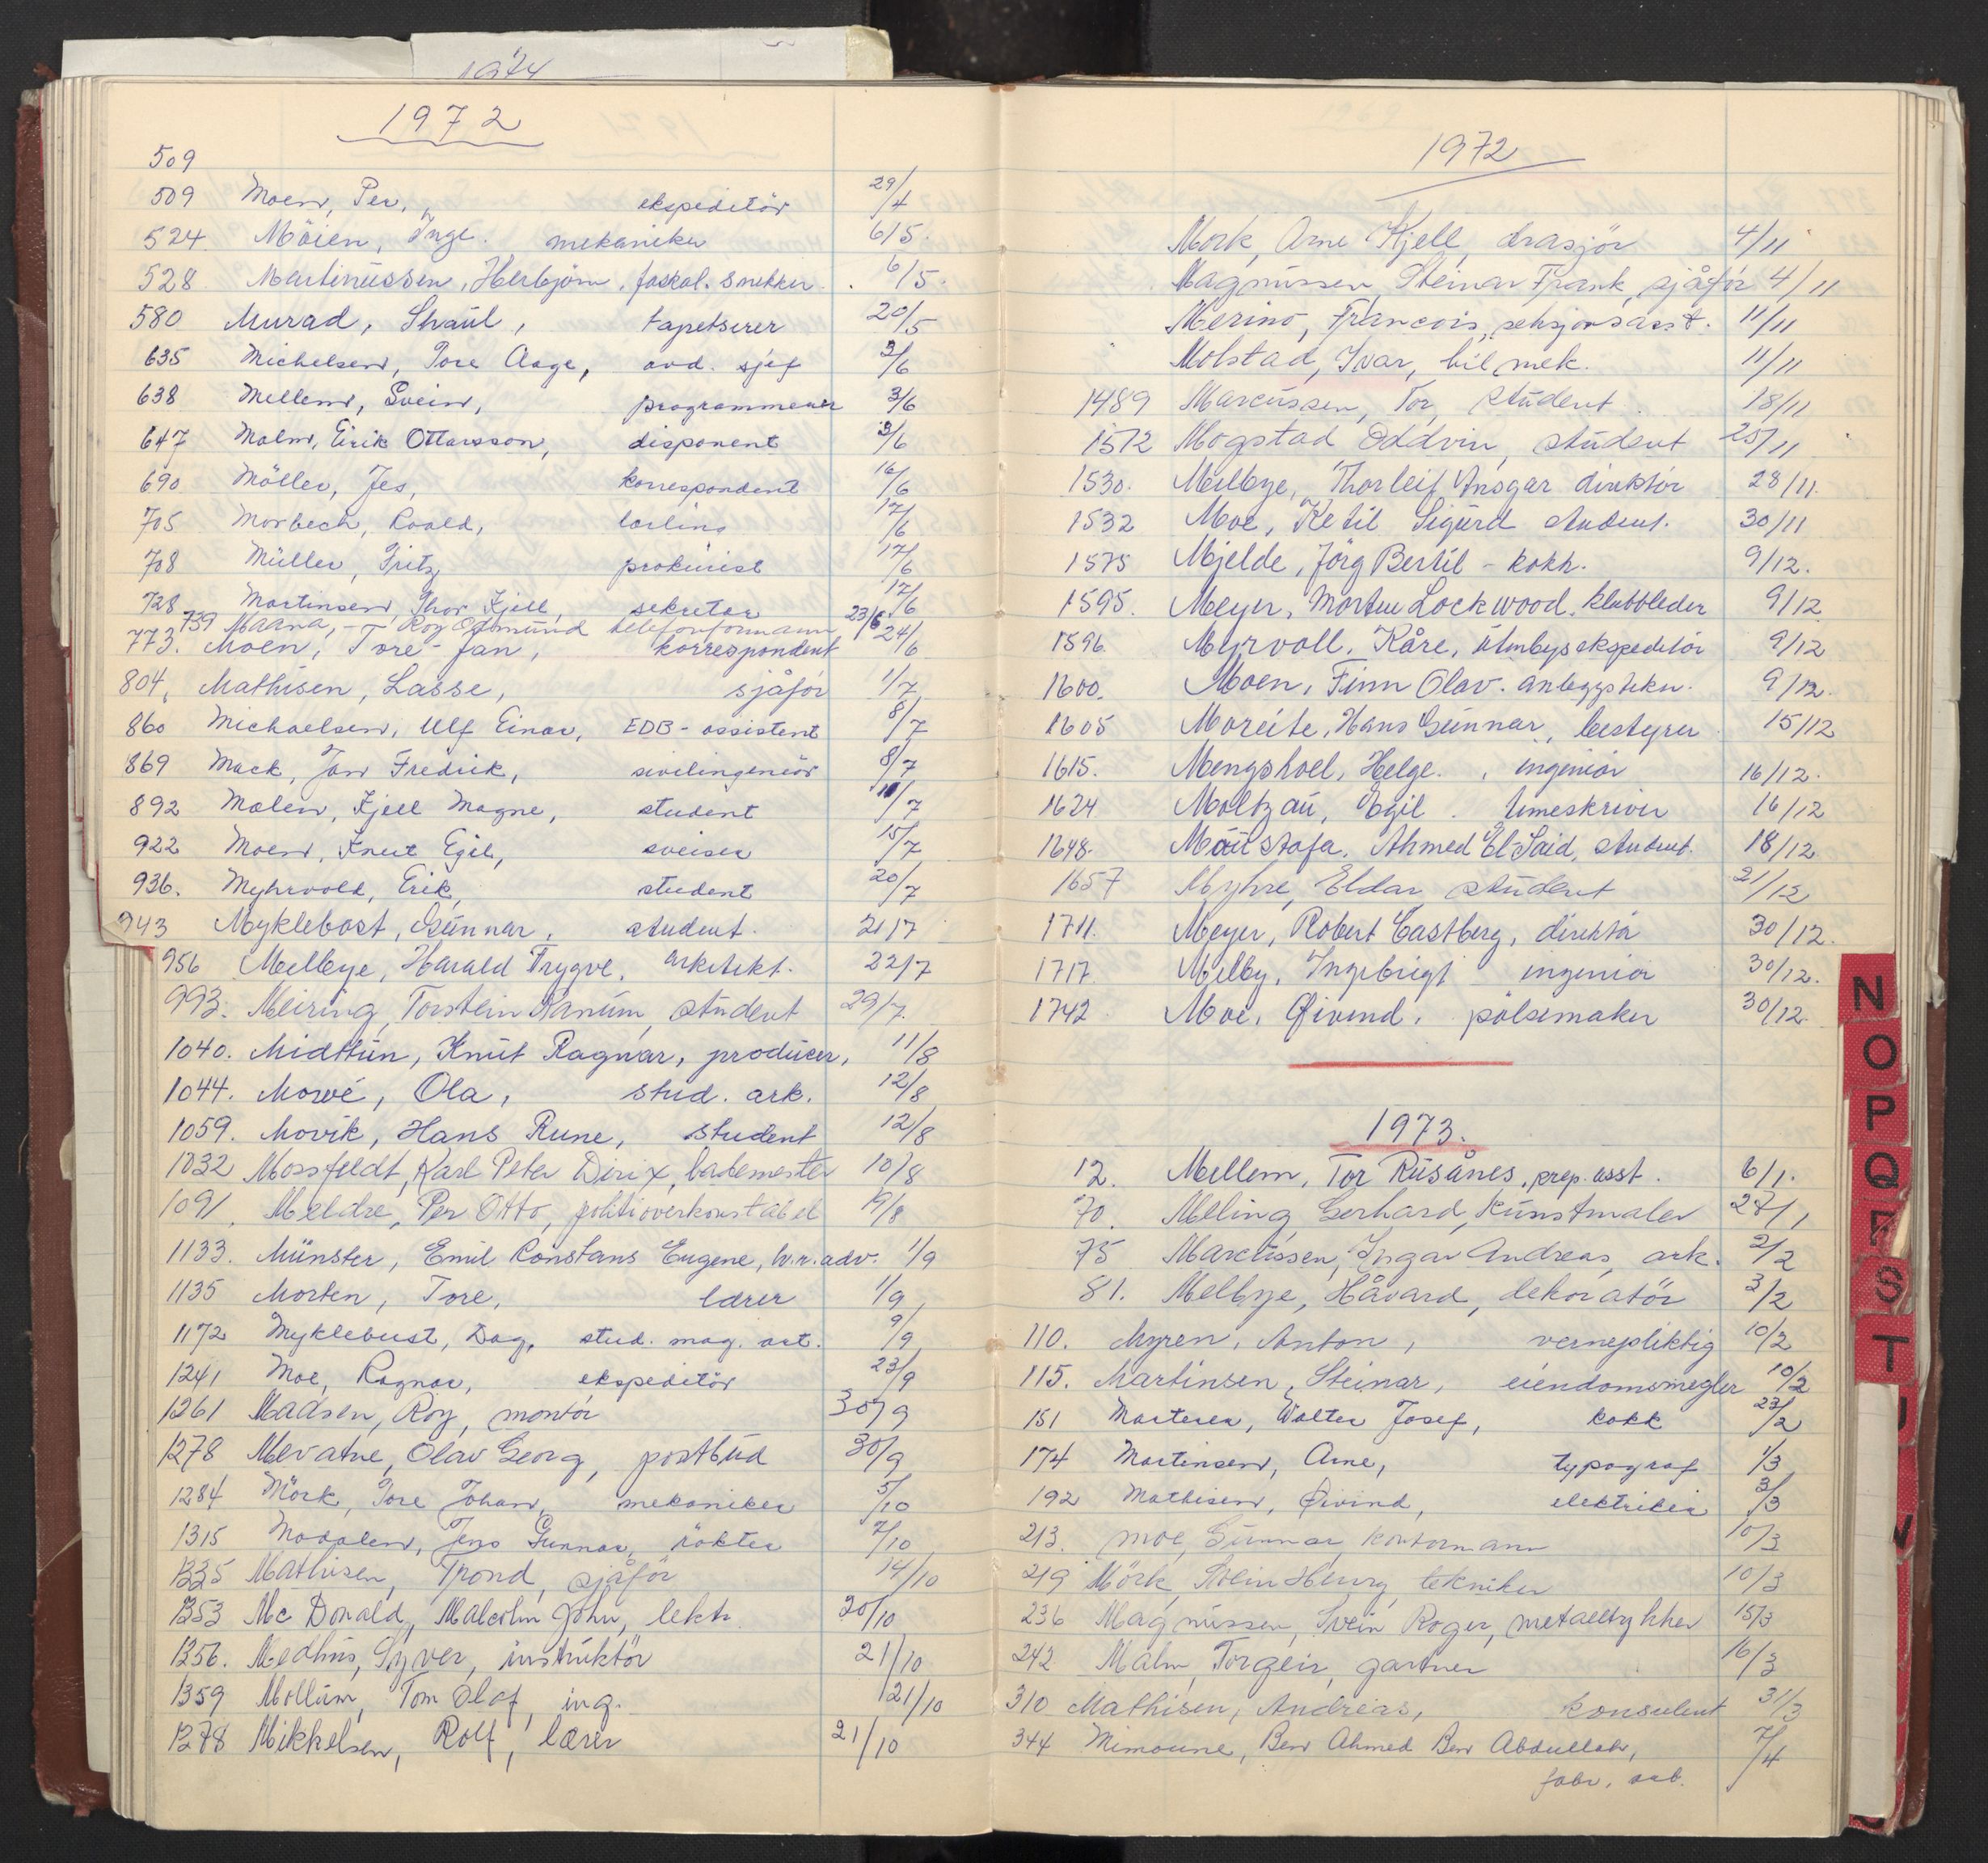 1974
1972
509
509 Moen, Per, ekspeditör 29/4
524. Möien, Inge. mekaniker 6/5.
528 Martinussen, Herbjörn, faskol. snekker. 6/5.
580 Murad, Shaul, tapetserer 20/5
635 Michelsen, Tore Aage, avd. sjef 3/6
638 Mellem, Svein, programmerer 3/6
647 Malm, Eirik Ottarsson, disponent 3/6
690 Möller, Jes, korrespondent 16/6
705 Morbech, Roald, lærling 17/6
708 Müller, Fritz prokurist 17/6
728 Martinsen, Thor Kjell, sekretær 17/6
739 Marna, Roy Osmund telefonformann 23/6
773. Moen, Tore-Jan, korrespondent 24/6
804, Mathisen, Lasse, sjåför 1/7
860 Michaelsen, Ulf Einar, EDB-assistent 8/7
869 Mack, Jan Fredrik, sivilingeniör 8/7
892 Malen, Kjell Magne, student 11/7
922 Moen, Knut Egil, sveiser 15/7
936. Myhrvold, Erik, student 20/7
943 Myklebost, Gunnar, student. 21/7
956 Melbye, Harald Trygve, arkitekt. 22/7
993. Meiring, Torstein Ranum, student 29/7.
1040. Midttun, Knut Ragnar, producer, 11/8
1044. Mowé, Ola, stud. ark. 12/8
1059. Movik, Hans Rune, student 12/8
1032 Mossfeldt, Karl Peter Dirix, bademester 10/8
1091, Meldre, Per Otto, politioverkonstabel 19/8
1133. Münster, Emil Constans Eugene, h.r.adv. 1/9
1135 Morten, Tore, lærer 1/9
1172 Myklebust, Dag, stud. mag. art. 9/9
1241 Moe, Ragnar, ekspeditör 23/9
1261 Madsen, Roy, montör 30/9
1278 Mevatne, Olav Georg, postbud 30/9
1284 Mörk, Tore Johan, mekaniker 5/10
1315 Modalen, Jens Gunnar, rökter 7/10
1335 Mathisen, Trond, sjåför 14/10
1353 Mc Donald, Malcolm John, lektr 20/10
1356. Medhus, Syver, instruktör 21/10
1359 Mollum, Tom Olaf, ing. 21/10
1378 Mikkelsen, Rolf, lærer 21/10
1972
Mörk, Arne Kjell, drasjör 4/11
Magnussen, Steinar Frank, sjåför 4/11
Merino, Francois, seksjonsasst. 11/11
Molstad, Ivar, bilmek. 11/11
1489 Marcussen, Tor, student. 18/11
1512 Mogstad Oddvin, student 25/11
1530. Melbye, Thorleif Ansgar direktör 28/11.
1532 Moe, Ketil Sigurd student. 30/11
1575 Mjelde, Jörg Bertil - kokk. 9/12.
1595. Meyer, Morten Lockwood. klubbleder 9/12
1596. Myrvoll, Kåre, utenbys ekspeditör 9/12
1600. Moen, Finn Olav. anleggstekn. 9/12.
1605 Moreite, Hans Gunnar, bestyrer 15/12
1615. Mengshoel, Helge., ingeniör 16/12.
1624 Moltzau, Egil. timeskriver 16/12
1648. Moustafa, Ahmed El-Said, student. 18/12
1657 Myhre, Eldar, student 21/12
1711. Meyer, Robert Castberg, direktör 30/12.
1717 Melby, Ingebrigt ingeniör 30/12.
1742 Moe, Øivind, pölsemaker 30/12.
1973.
12. Mellem, Tor Rusånes, prep. asst. 6/1.
70. Meling, Gerhard, Kunstmaler 27/1
75 Marcussen, Ingar Andreas, ark. 2/2
81. Melbye, Håvard, dekoratör 3/2
110. Myren, Anton, vernepliktig 10/2
115. Martinsen, Steinar, eiendomsmegler 10/2
151 Marterer, Walter Josef, kokk 23/2
174 Martinsen, Arne, typograf 1/3
192 Mathisen, Øivind, elektriker 3/3
213. Moe, Gunnar, kontormann 10/3
219 Mörk, Svein Henry, tekniker 10/3
236 Magnussen, Svein Roger, metalltrykker 15/3
242 Malm, Torgeir, gartner 16/3
310 Mathisen, Andreas, konsulent 31/3
344 Mimoune, Ben Ahmed Ben Abdullah, 7/4
fabr. arb.
N
O
P
Q
R
S
T